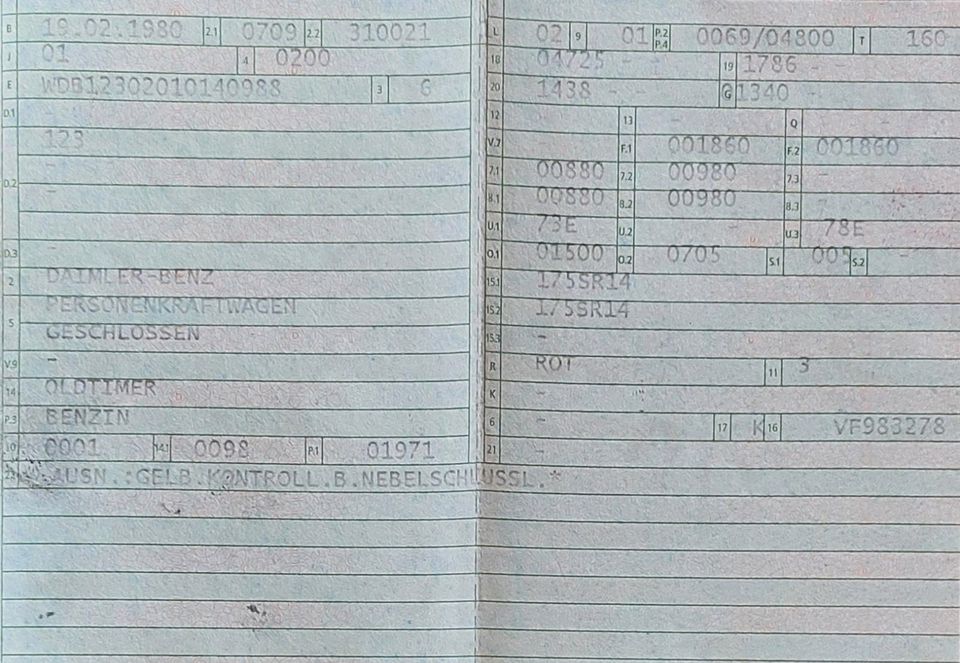 B 19.02.1980 2.1 0709 2.2 310021
J 01 4 0200
E WDB12302010140988 3 G
D.1 -
123
D.2 -
-
D.3 -
2 DAIMLER-BENZ
5 PERSONENKRAFTWAGEN
GESCHLOSSEN
V.9 -
14 OLDTIMER
P.3 BENZIN
10 0001 14.1 0098 P.1 01971
22 AUSN.:GELB.KONTROLL.B.NEBELSCHLUSSL.*
L 02 9 01 P.2 P.4 0069/04800 T 160
18 04725 - - 19 1786 - -
20 1438 - - G 1340 -
12 - 13 - Q -
V.7 - F.1 001860 F.2 001860
7.1 00880 7.2 00980 7.3 -
8.1 00880 8.2 00980 8.3 -
U.1 73E U.2 - U.3 78E
O.1 01500 O.2 0705 S.1 005 S.2 -
15.1 175SR14
15.2 175SR14
15.3 -
R ROT 11 3
K -
6 - 17 K 16 VF983278
21 -